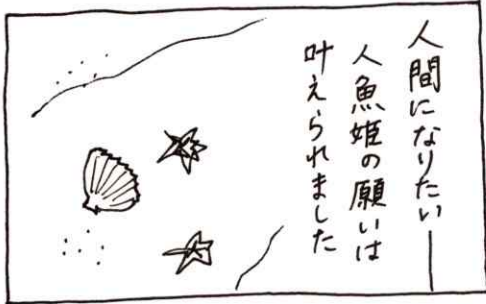 人間になりたい――
人魚姫の願いは
叶えられました